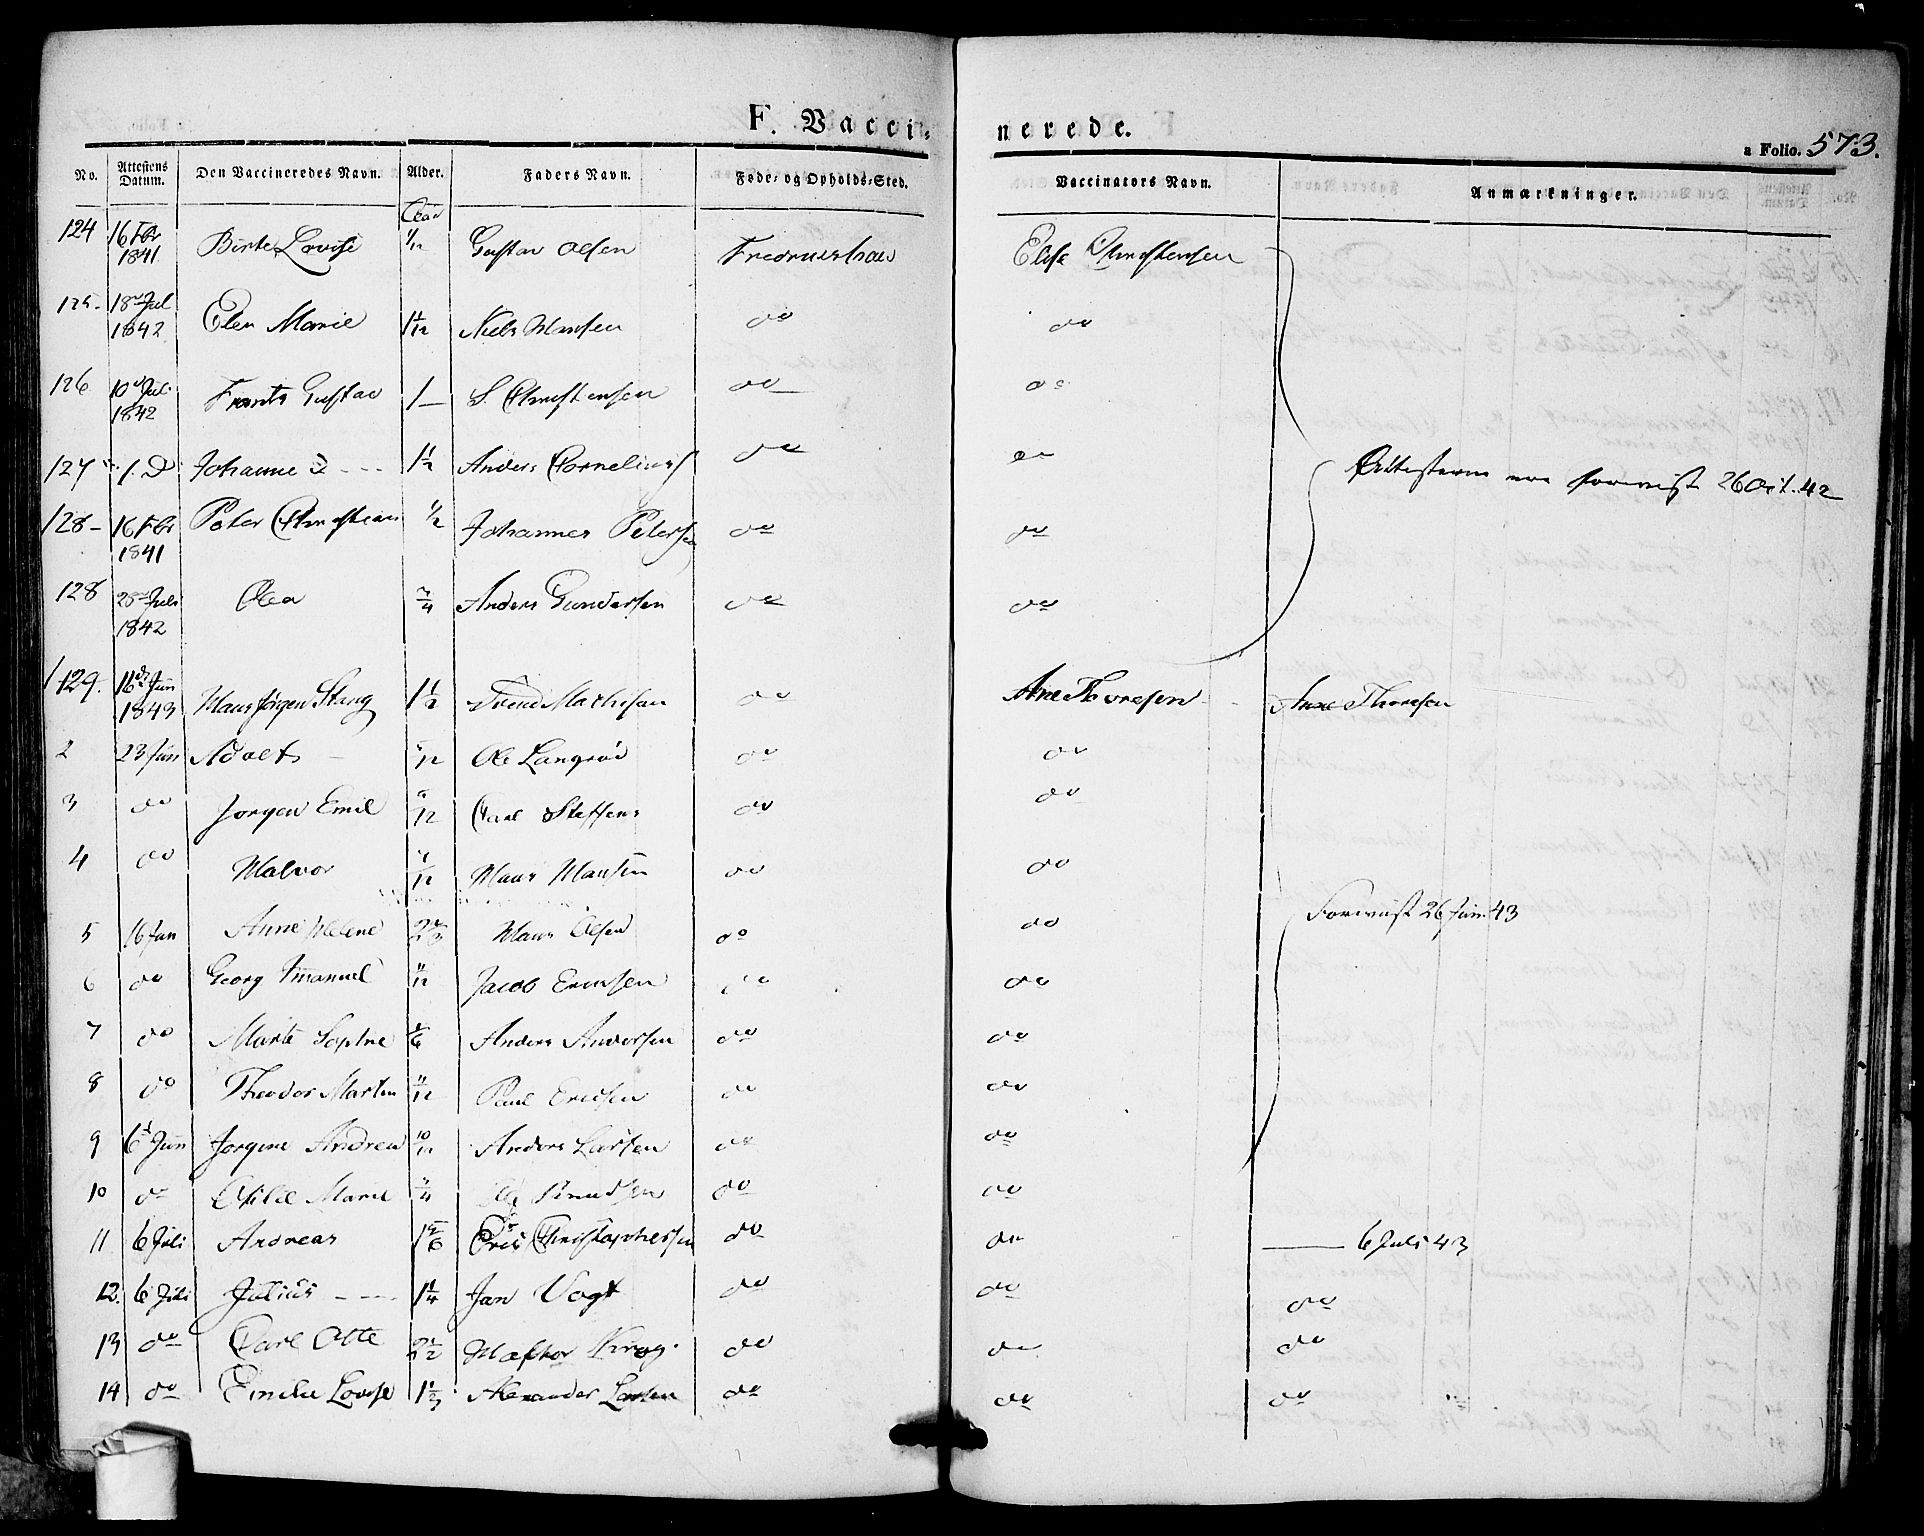 F. Vacci-
nerede.
a Folio. 573.
No. Attestens Datum. Den Vaccineredes Navn. Alder. Faders Navn. Føde- og Opholds-Sted. Vaccinators Navn. Anmærkninger.
124 16 Fbr 1841 Birte Lovise 1/12 Gustav Olsen Elise Christensen
125- 18 Jul 1842 Elen Marie 1 1/12 Niels Hansen do do
126 10 Jul 1842 Frants Gustav 1 — S. Christensen do do
127 1. D Johanne 1 1/2 Anders Cornelius do do Attesterne ere foreviist 26 Oct. 42
128- 16 Fbr 1841 Peter Christian 1/2 Johannes Petersen do do
128 28 Juli 1842 Olea 3/4 Anders Gundersen do do
129. 16 Jun 1843 Hans Jørgen Stang 1 1/2 Mathisen do Ane Thoresen Anne Thoresen
2 23 Jun Adolf /12 Ole Langrød do do
3 do Jørgen Emil /12 Carl Steffens do do
4 do Halvor /12 Hans Hansen do do
5 16 Jun Anne Helene Hans Olsen do do Foreviist 26 Jun. 43
6 do Georg Imanuel 11/12 Jacob Ericksen do do
7 do Marte Sophie /6 Anders Andersen do do
8 do Theodor Martin 11/12 Paul Ericsen do do
9 6 Jun Jørgine Andrea 10/12 Anders Larsen do do
10 do Marie /4 Knudsen do do
11 6 Juli Andreas 1 5/6 Christophersen do do — 6 Juli 43
12. 6 Juli Julius 1 1/4 Jan Vogt do do do
13 do Carl Otte 2 1/2 Krog. do do do
14 do Emilie Lovise 1 Alexander Larsen do do do